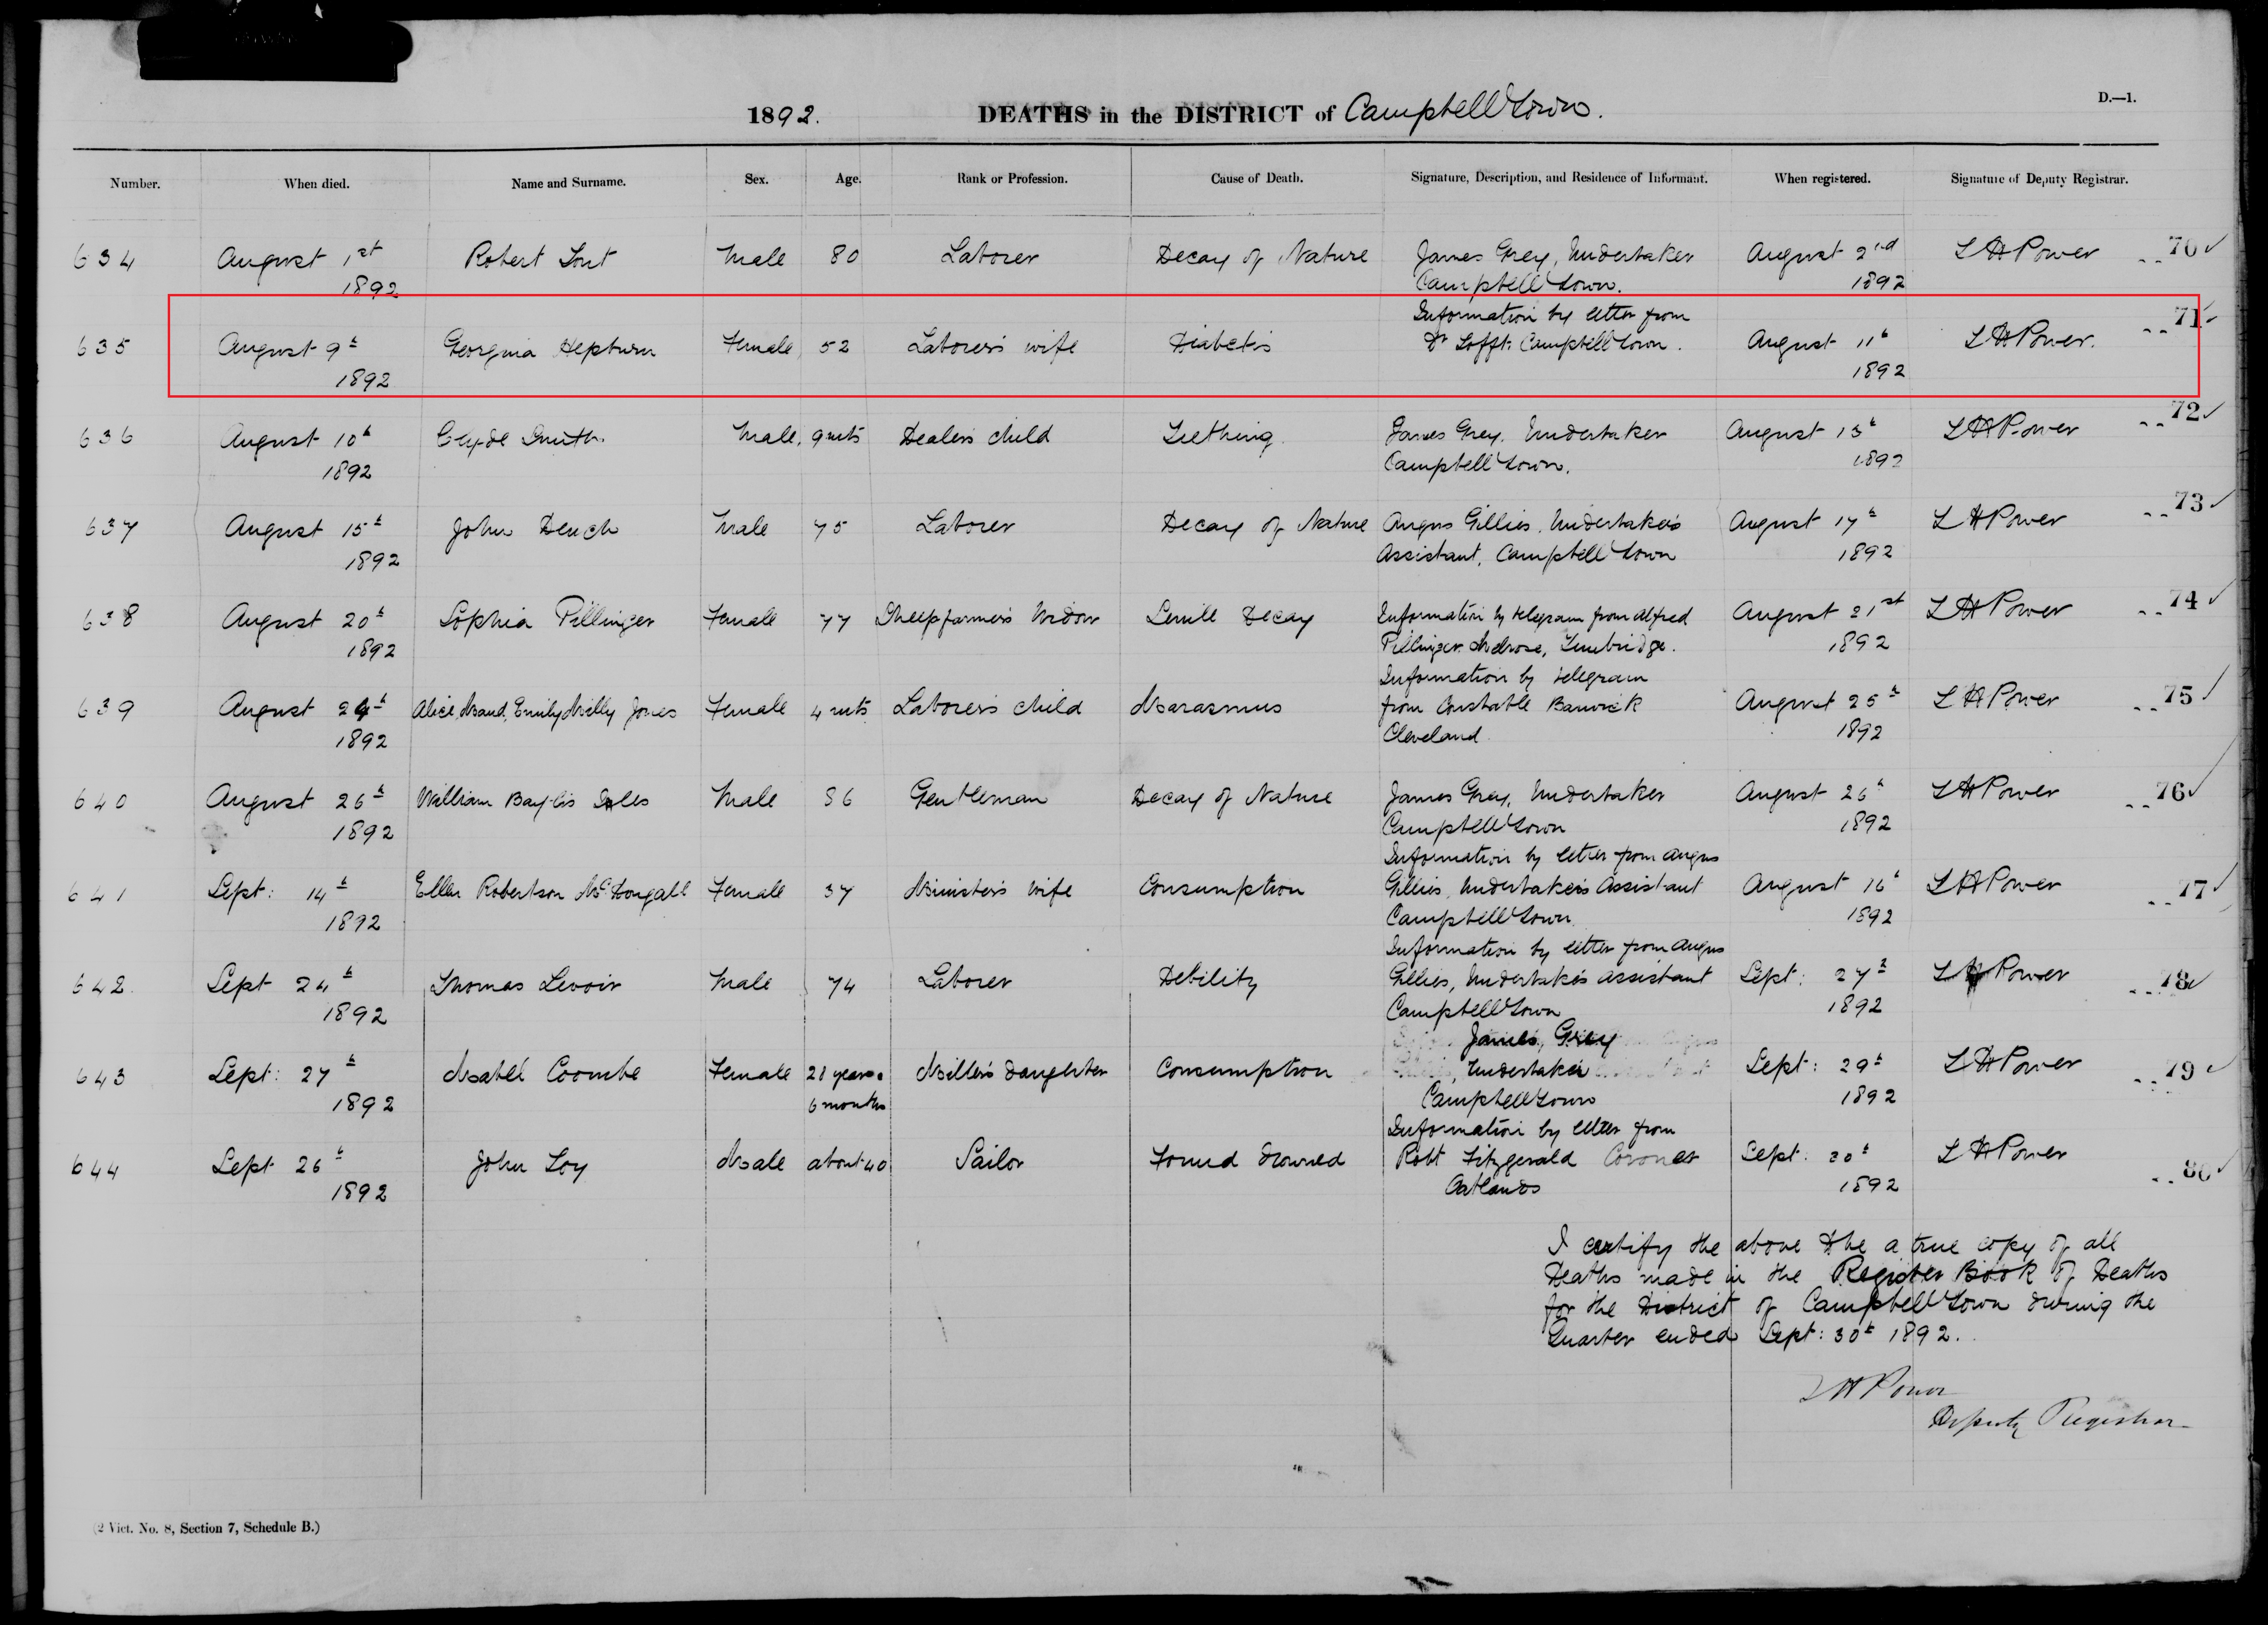 1892. DEATHS in the DISTRICT of Campbell Town. D.—1.
Number. When died. Name and Surname. Sex. Age. Rank or Profession. Cause of Death. Signature, Description, and Residence of Informant. When registered. Signature of Deputy Registrar.
634 August 1st Robert Male 80 Laborer Decay of Nature James Grey, Undertaker August 2nd L H Power 70
1892 Campbell Town. 1892
Information by letter from 71
635 August 9th Georgina Hepburn Female 52 Laborer's wife Diabetis Dr Lofft. Campbell Town. August 11th L H Power.
1892 1892
636 August 10th Clyde Smith. Male. 9 mts Dealer's child Teething. James Grey. Undertaker August 13th L H Power 72
1892 Campbell Town. 1892
637 August 15th John Dench Male 75 Laborer Decay of Nature Angus Gillies. Undertaker's August 17th L H Power 73
1892 Assistant. Campbell Town 1892
638 August 20th Sophia Pillinger Female 77 Sheepfarmer's Widow Senile Decay Information by telegram from Alfred August 21st L H Power 74
1892 Pillinger. Melrose, Tunbridge. 1892
Information by telegram
639 August 24th Alice, Maud, Emily, Milly Jones Female 4 mts Laborer's child Marasmus from Constable Barwick August 25th L H Power 75
1892 Cleveland 1892
640 August 26th William Bayliss Male 86 Gentleman Decay of Nature James Grey, Undertaker August 26th L H Power 76
1892 Campbell Town 1892
Information by letter from Angus
641 Sept: 14th Ellen Robertson McDougall Female 37 Minister's wife Consumption Gillies, Undertaker's Assistant August 16th L H Power 77
1892 Campbell Town 1892
Information by letter from Angus
642 Sept 24th Thomas Male 74 Laborer Debility Gillies, Undertaker's Assistant Sept: 27th L H Power 78
1892 Campbell Town 1892
James, Grey
643 Sept: 27th Mabel Coombe Female 21 years Miller's daughter Consumption Undertaker Sept: 29th L H Power 79
1892 6 months Campbell Town 1892
Information by letter from
644 Sept 26th John Male about 40 Sailor Found drowned Robt Fitzgerald Coroner Sept: 30th L H Power 80
1892 Oatlands 1892
I certify the above to be a true copy of all
Deaths made in the Register Book of Deaths
for the District of Campbell Town during the
Quarter ended Sept: 30th 1892.
L H Power
Deputy Registrar
(2 Vict. No. 8, Section 7, Schedule B.)